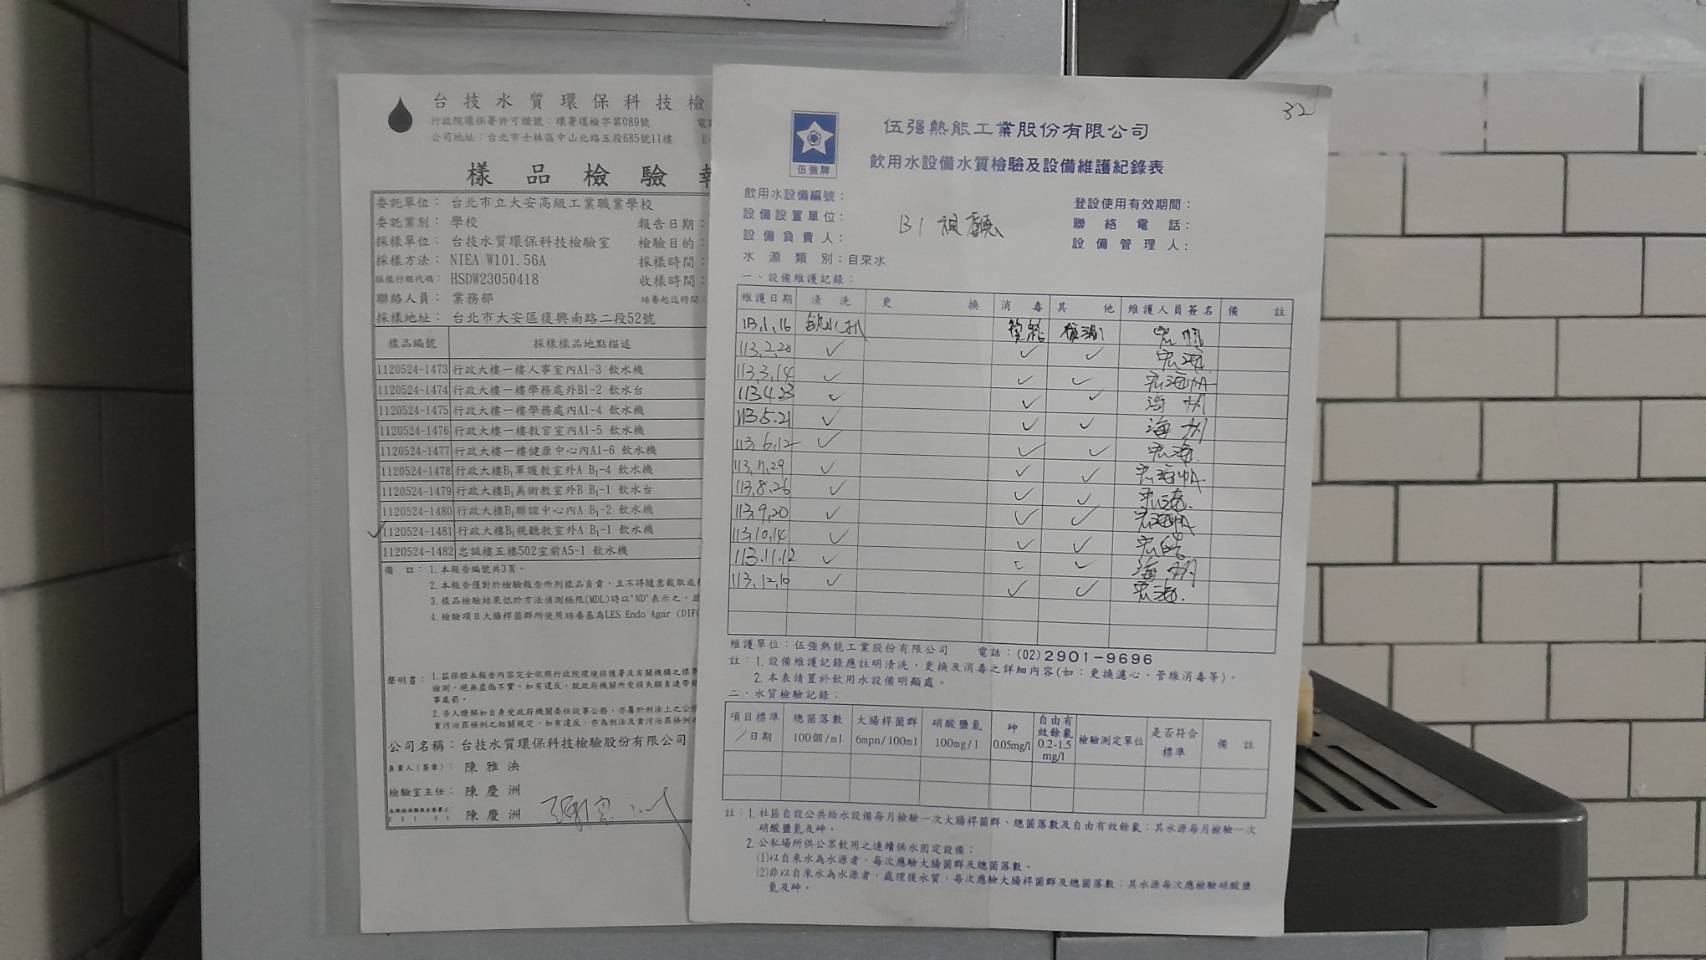 台技水質環保科技檢
行政院環保署許可證號：環署環檢字第089號
公司地址：台北市士林區中山北路五段685號11樓
樣品檢驗
委託單位：台北市立大安高級工業職業學校
委託業別：學校 報告日期：
採樣單位：台技水質環保科技檢驗室 檢驗目的：
採樣方法：NIEA W101.56A 採樣時間：
採樣行程代碼：HSDW23050418 收樣時間：
聯絡人員：業務部 培養起迄時間：
採樣地址：台北市大安區復興南路二段52號
樣品編號 採樣樣品地點描述
1120524-1473 行政大樓一樓人事室內A1-3 飲水機
1120524-1474 行政大樓一樓學務處外B1-2 飲水台
1120524-1475 行政大樓一樓學務處內A1-4 飲水機
1120524-1476 行政大樓一樓教官室內A1-5 飲水機
1120524-1477 行政大樓一樓健康中心內A1-6 飲水機
1120524-1478 行政大樓B1軍護教室外A B1-4 飲水機
1120524-1479 行政大樓B1美術教室外B B1-1 飲水台
1120524-1480 行政大樓B1聯誼中心內A B1-2 飲水機
✓ 1120524-1481 行政大樓B1視聽教室外A B1-1 飲水機
1120524-1482 忠誠樓五樓502室前A5-1 飲水機
備 註：1.本報告編號共3頁。
2.本報告僅對於檢驗報告所列樣品負責，且不得隨意截取或
3.樣品檢驗結果低於方法偵測極限(MDL)時以"ND"表示之，並
4.檢驗項目大腸桿菌群所使用培養基為LES Endo Agar (DIF
聲明書：1.茲保證本報告內容完全依照行政院環境保護署及有關機構之標準
檢測，絕無虛偽不實。如有違反，就政府機關所受損失願負連帶
事處罰。
2.吾人瞭解如自身受政府機關委任從事公務，亦屬於刑法上之公務
貪污治罪條例之相關規定，如有違反，亦為刑法及貪污治罪條例
公司名稱：台技水質環保科技檢驗股份有限公司
負責人(簽章)：陳雅泱
檢驗室主任：陳慶洲
陳慶洲
32
伍強牌
伍强熱能工業股份有限公司
飲用水設備水質檢驗及設備維護紀錄表
飲用水設備編號： 登設使用有效期間：
設備設置單位： B1視聽 聯絡電話：
設備負責人： 設備管理人：
水源類別：自來水
一、設備維護記錄：
維護日期 清洗 更換 消毒 其他 維護人員簽名 備註
113.1.16
113.2.20 ✓ ✓ ✓ 宏海
113.3.14 ✓ ✓ ✓
113.4.23 ✓ ✓ ✓ 海州
113.5.21 ✓ ✓ ✓ 海州
113.6.12 ✓ ✓ ✓ 宏海
113.7.29 ✓ ✓ ✓
113.8.26 ✓ ✓ ✓ 宏海
113.9.20 ✓ ✓ ✓
113.10.14 ✓ ✓ ✓
113.11.12 ✓ ✓ ✓ 海州
113.12.10 ✓ ✓ ✓ 宏海
維護單位：伍強熱能工業股份有限公司 電話：(02)2901-9696
註：1.設備維護記錄應註明清洗，更換及消毒之詳細內容(如：更換濾心、管線消毒等)。
2.本表請置於飲用水設備明顯處。
二、水質檢驗記錄：
項目標準／日期 總菌落數 100個/ml 大腸桿菌群 6mpn/100ml 硝酸鹽氮 100mg/l 砷 0.05mg/l 自由有效餘氯 0.2-1.5 mg/l 檢驗測定單位 是否符合標準 備註
註：1.社區自設公共給水設備每月檢驗一次大腸桿菌群、總菌落數及自由有效餘氯；其水源每月檢驗一次
硝酸鹽氮及砷。
2.公私場所供公眾飲用之連續供水固定設備：
(1)以自來水為水源者，每次應驗大腸菌群及總菌落數。
(2)非以自來水為水源者，處理後水質，每次應驗大腸桿菌群及總菌落數；其水源每次應檢驗硝酸鹽
氮及砷。